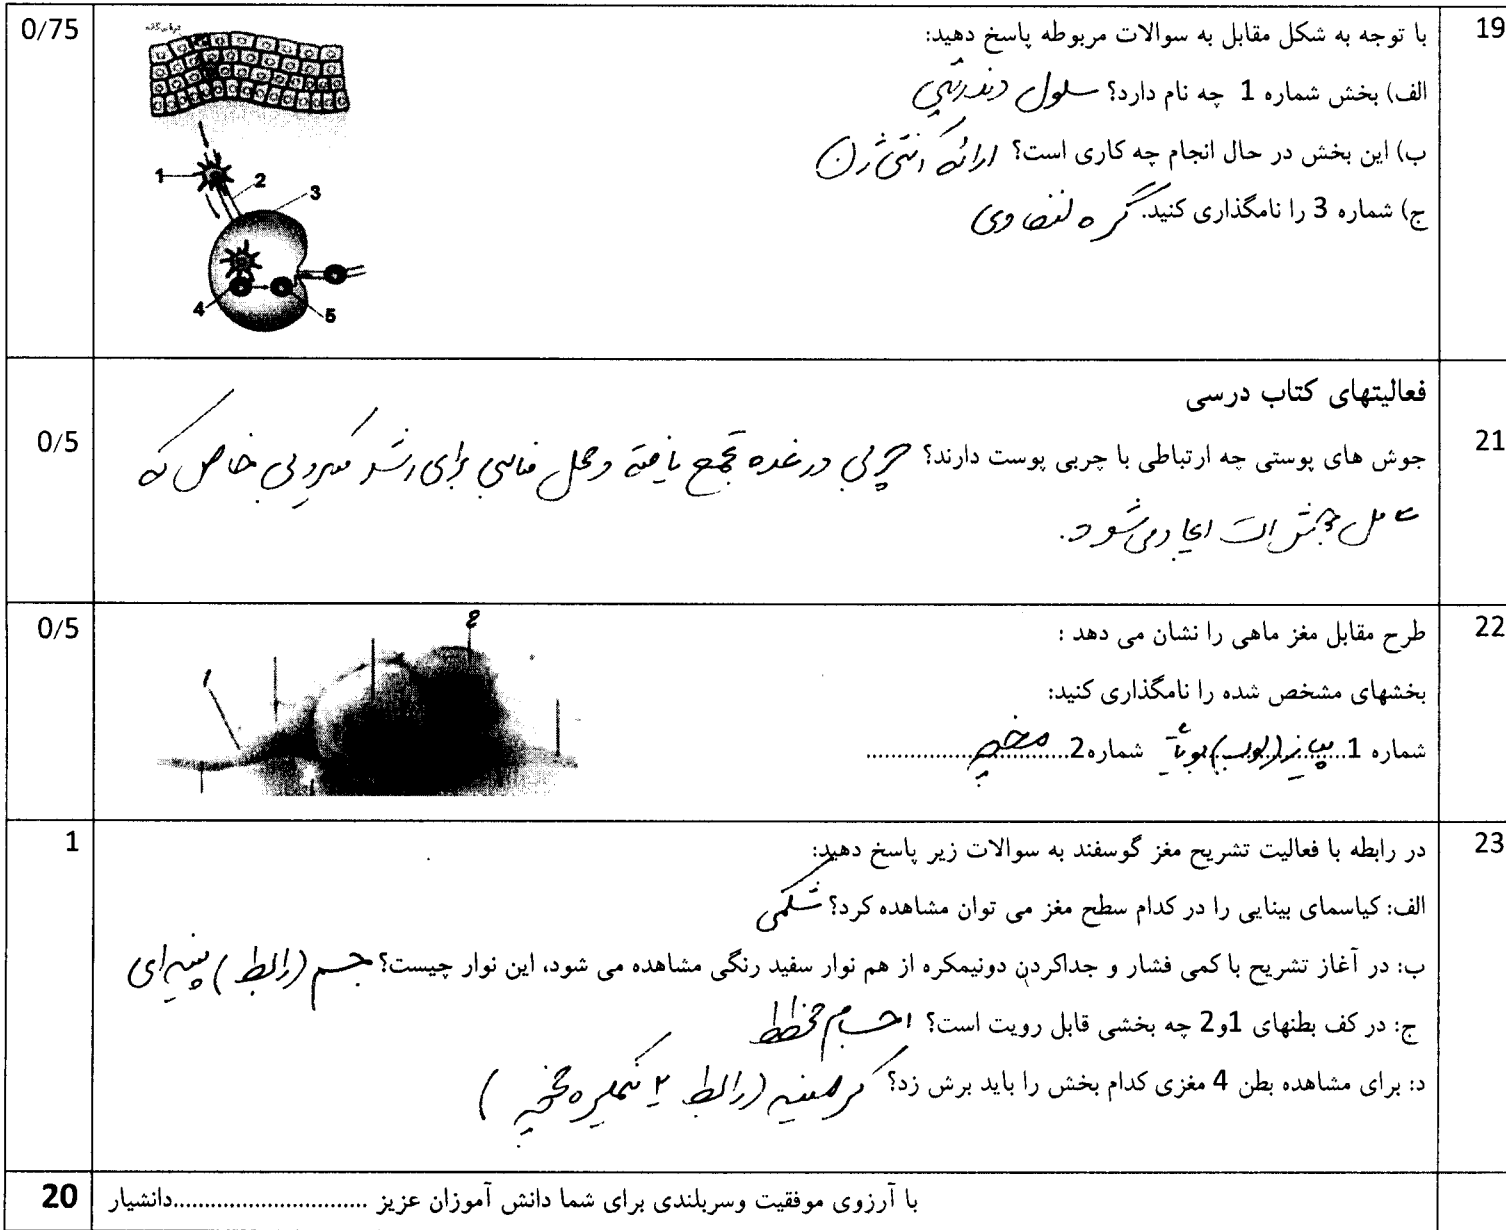 19
0/75
با توجه به شکل مقابل به سوالات مربوطه پاسخ دهید:
الف) بخش شماره 1 چه نام دارد؟ سلول دندریتی
ب) این بخش در حال انجام چه کاری است؟ ارائه آنتی ژن
ج) شماره 3 را نامگذاری کنید. گره لنفاوی
1
2
3
4
5
فعالیتهای کتاب درسی
21
0/5
جوش های پوستی چه ارتباطی با چربی پوست دارند؟ چربی در غده تجمع یافته و محل مناسبی برای رشد میکروبی خاص که
عامل جوش است ایجاد می شود.
22
0/5
طرح مقابل مغز ماهی را نشان می دهد :
بخشهای مشخص شده را نامگذاری کنید:
شماره 1 پیاز (لوب) بویایی شماره 2 مخچه
1
2
23
1
در رابطه با فعالیت تشریح مغز گوسفند به سوالات زیر پاسخ دهید:
الف: کیاسمای بینایی را در کدام سطح مغز می توان مشاهده کرد؟ شکمی
ب: در آغاز تشریح با کمی فشار و جداکردن دونیمکره از هم نوار سفید رنگی مشاهده می شود، این نوار چیست؟ جسم (رابط) پینه ای
ج: در کف بطنهای 1و2 چه بخشی قابل رویت است؟ اجسام مخطط
د: برای مشاهده بطن 4 مغزی کدام بخش را باید برش زد؟ کرمینه (رابط 2 نیمکره مخچه)
20
با آرزوی موفقیت وسربلندی برای شما دانش آموزان عزیز ................................دانشیار